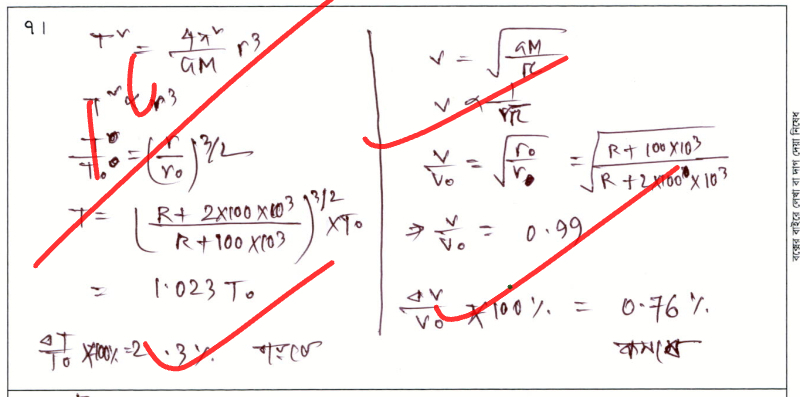 91
T² = 4π²/GM r³
T² ∝ r³
T/T₀ = (r/r₀)^3/2
T = (R + 2×100×10³ / R + 100×10³)^3/2 × T₀
= 1.023 T₀
ΔT/T₀ × 100% = 2.3%
v = √(GM/r)
v ∝ 1/√r
v/v₀ = √(r₀/r) = √(R + 100×10³ / R + 2×100×10³)
⇒ v/v₀ = 0.99
Δv/v₀ × 100% = 0.76%
বক্সের বাইরে লেখা বা দাগ দেয়া নিষেধ